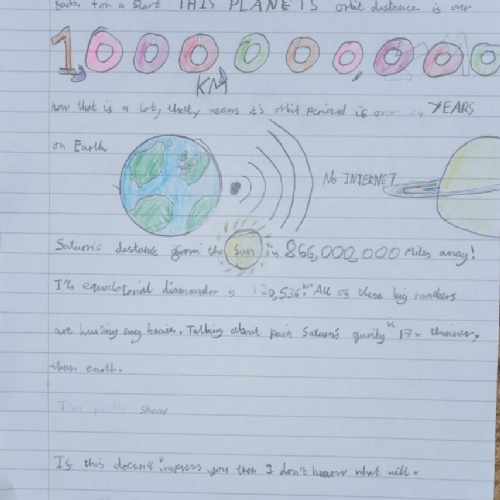 for a start THIS PLANETS orbit distance is over
1,000000,000
KM
now that is a lot, that, means it's orbit period is over YEARS
on Earth.
No INTERNET
Saturn's distance from the Sun is 866,000,000 Miles away!
It's equilatorial is 120,536 km. All of these big numbers
are hurting my brain. Talking about pain Saturn's is 17x
than earth.
show
If this doesn't impress you then I don't know what will.